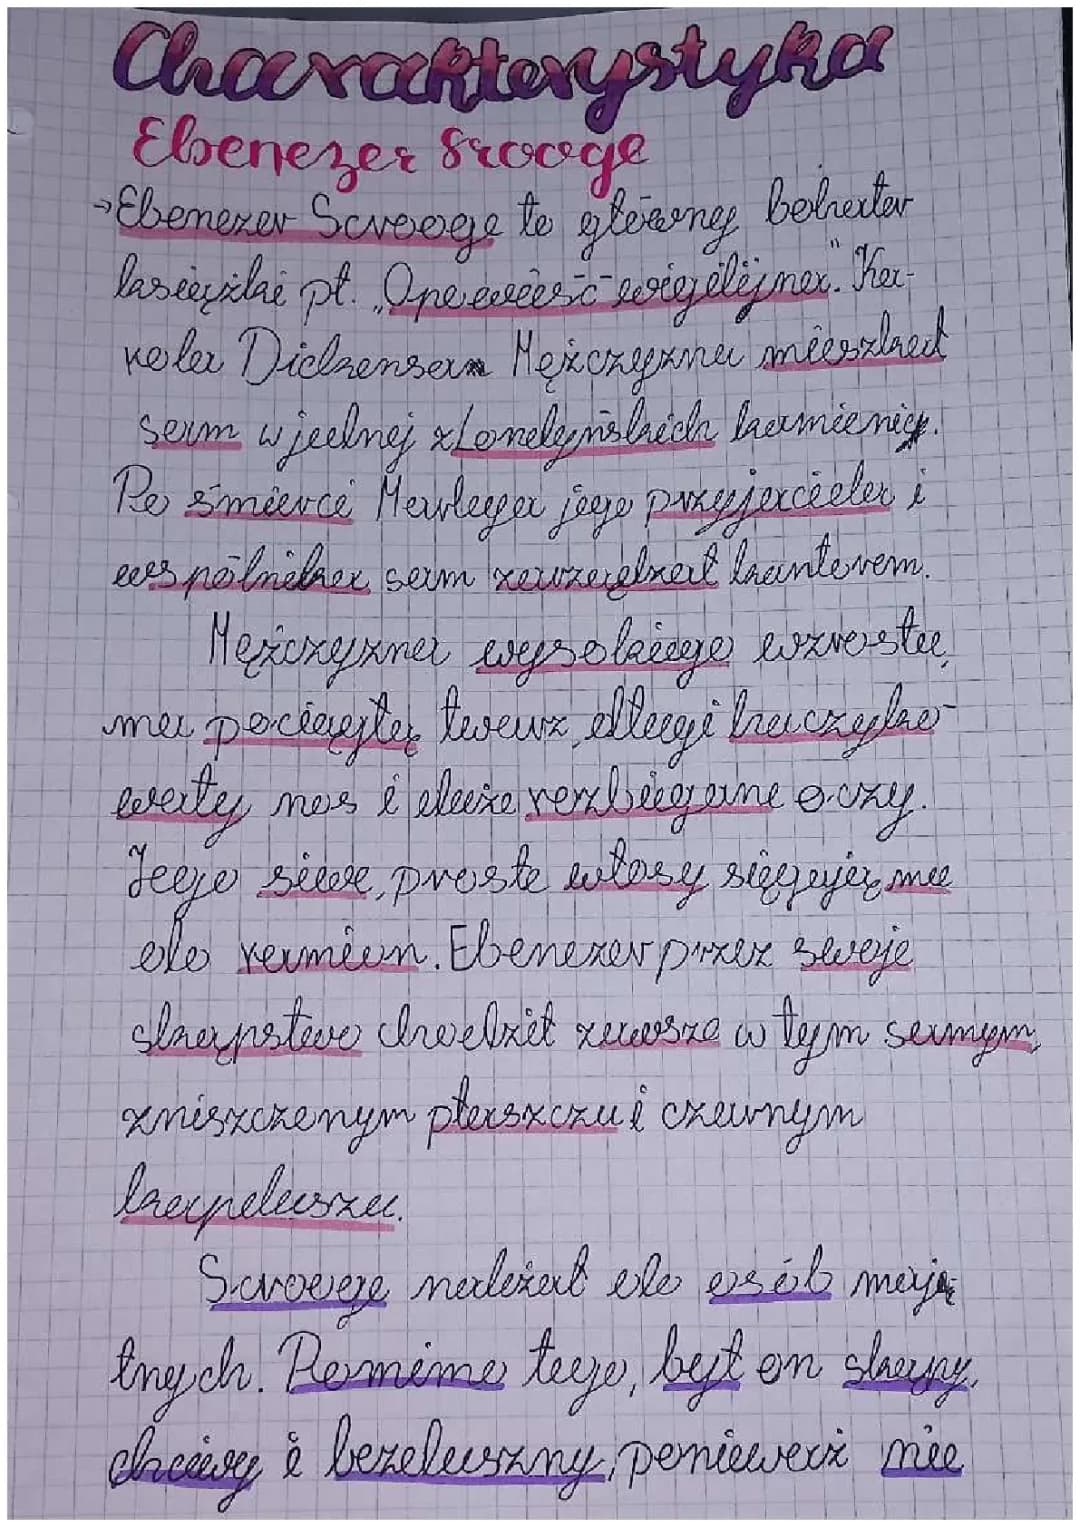 Charakterystyka
Ebenezer Srooge
→Ebenezer Scrooge to główny bohater
książki pt. „Opowieść wigilijna". Ka-
rola Dickensa Mężczyzna mieszkał
sam w jednej z Londyńskich kamienic.
Po śmierci Marleya jego przyjaciela i
wspólnika, sam zarządzał kantorem.
Mężczyzna wysokiego wzrostu,
ma pociągłą twarz, długi haczyko-
waty nos i duże rozbiegane oczy.
Jego siwe, proste włosy sięgają mu
do ramion. Ebenezer przez swoje
skąpstwo chodził zawsze w tym samym,
zniszczonym płaszczu i czarnym
kapeluszu.
Scrooge należał do osób mają-
tnych. Pomimo tego, był on skąpy,
chciwy i bezduszny, ponieważ nie